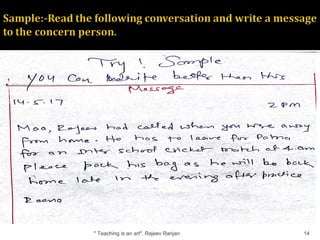 Sample:-Read the following conversation and write a message
to the concern person.
Try! Sample
You Can write better than this
Message
14.5.17 2 pm
Maa, Rajeev had called when you were away
from home. He has to leave for Patna
for an Inter school cricket match at 4 am
please pack his bag as he will be back
home late in the evening after practice
Reena
" Teaching is an art". Rajeev Ranjan 14